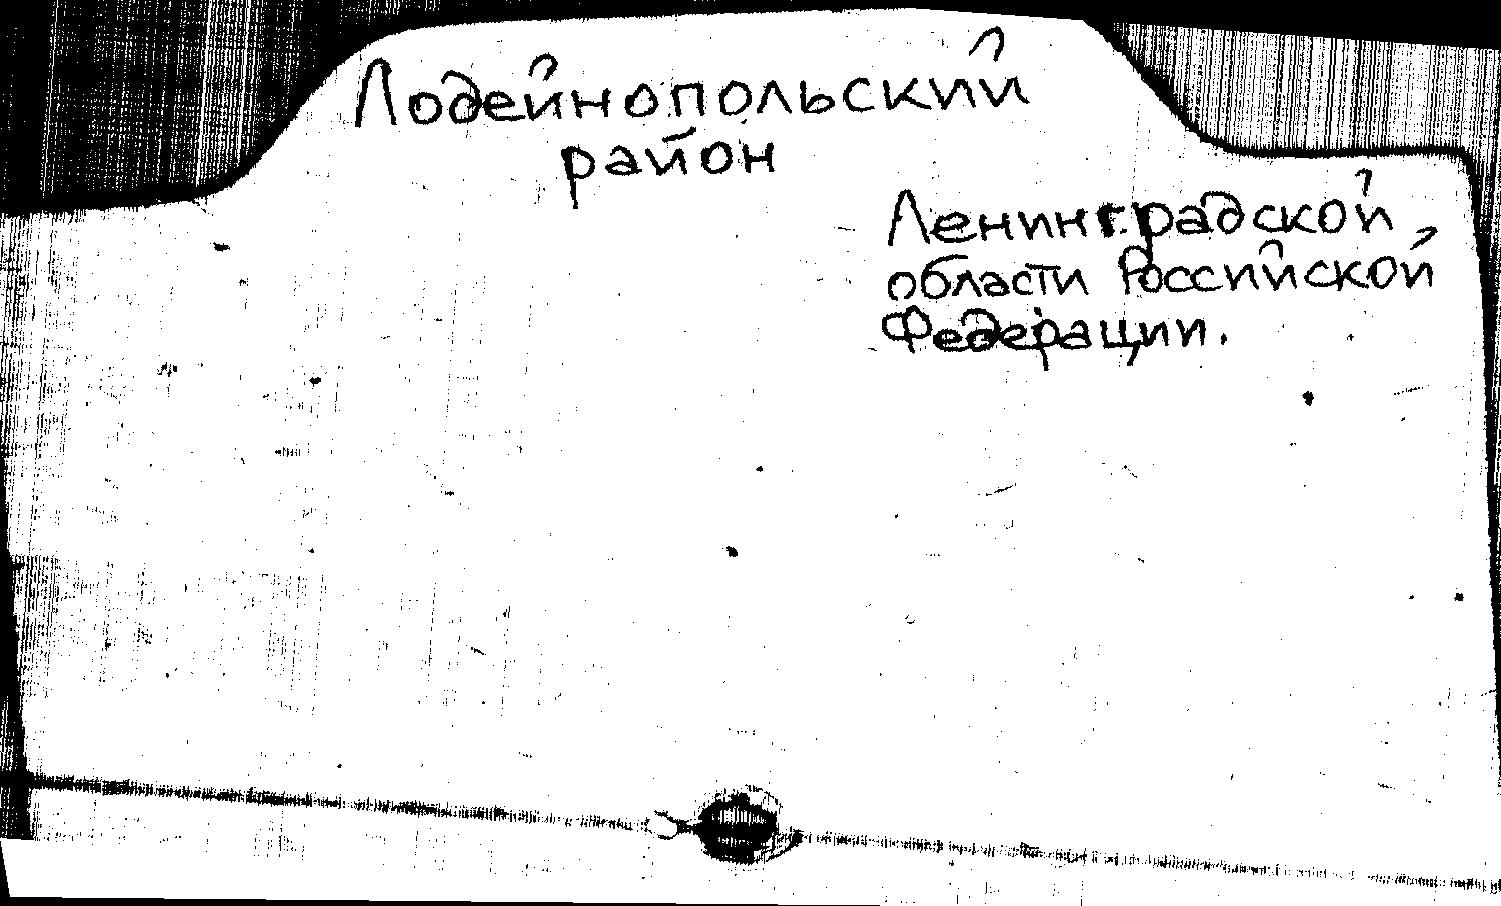 Лодейнопольский
район
Ленинградской
области Российской
Федерации.